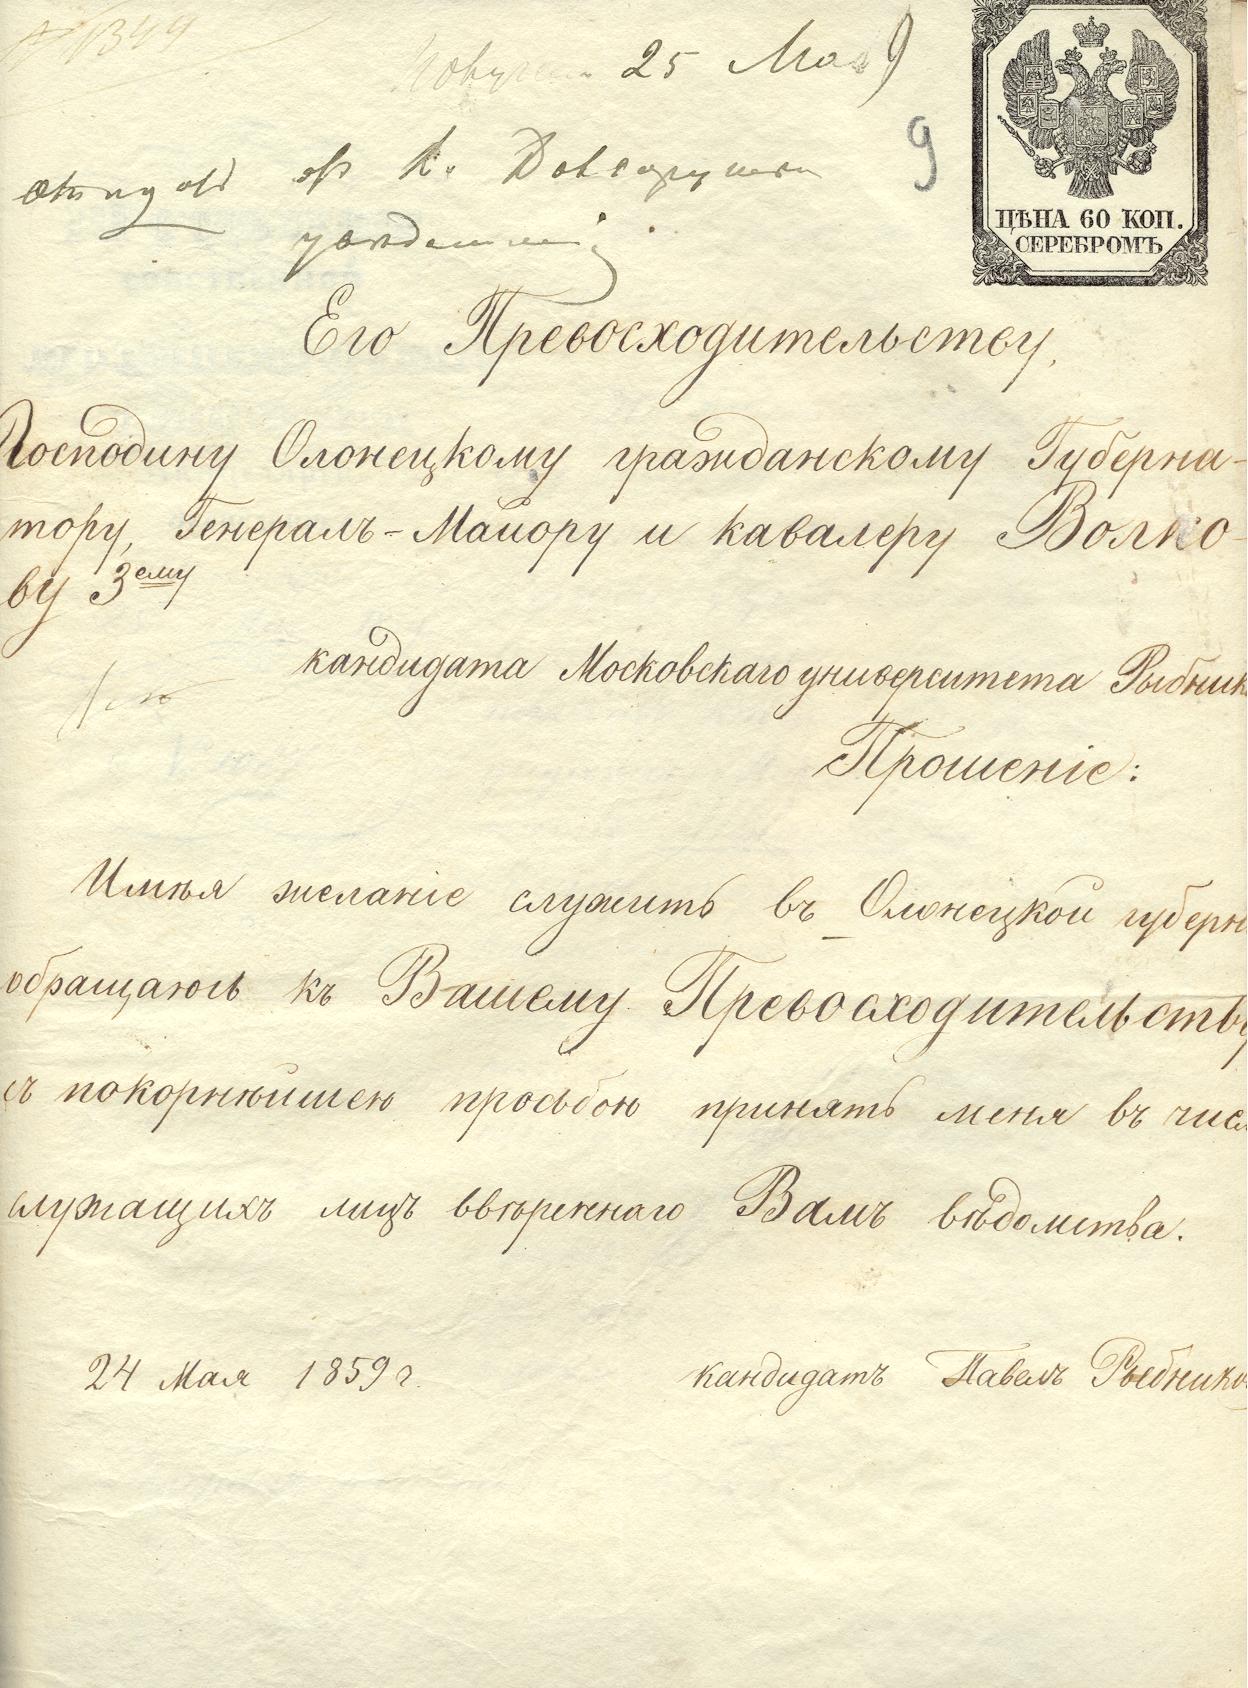 25 Мая
9
ЦѢНА 60 КОП.
СЕРЕБРОМЪ
Его Превосходительству,
Господину Олонецкому гражданскому Губерна-
тору, Генералъ-Маиору и кавалеру Волко-
ву 3ему
кандидата Московскаго университета Рыбник
Прошеніе:
Имѣя желаніе служить въ Олонецкой губерн
обращаюсь къ Вашему Превосходительству
съ покорнѣйшею просьбою принять меня въ числ
служащихъ лицъ ввѣреннаго Вамъ вѣдомства.
24 Мая 1859 г.
кандидатъ Павелъ Рыбнико